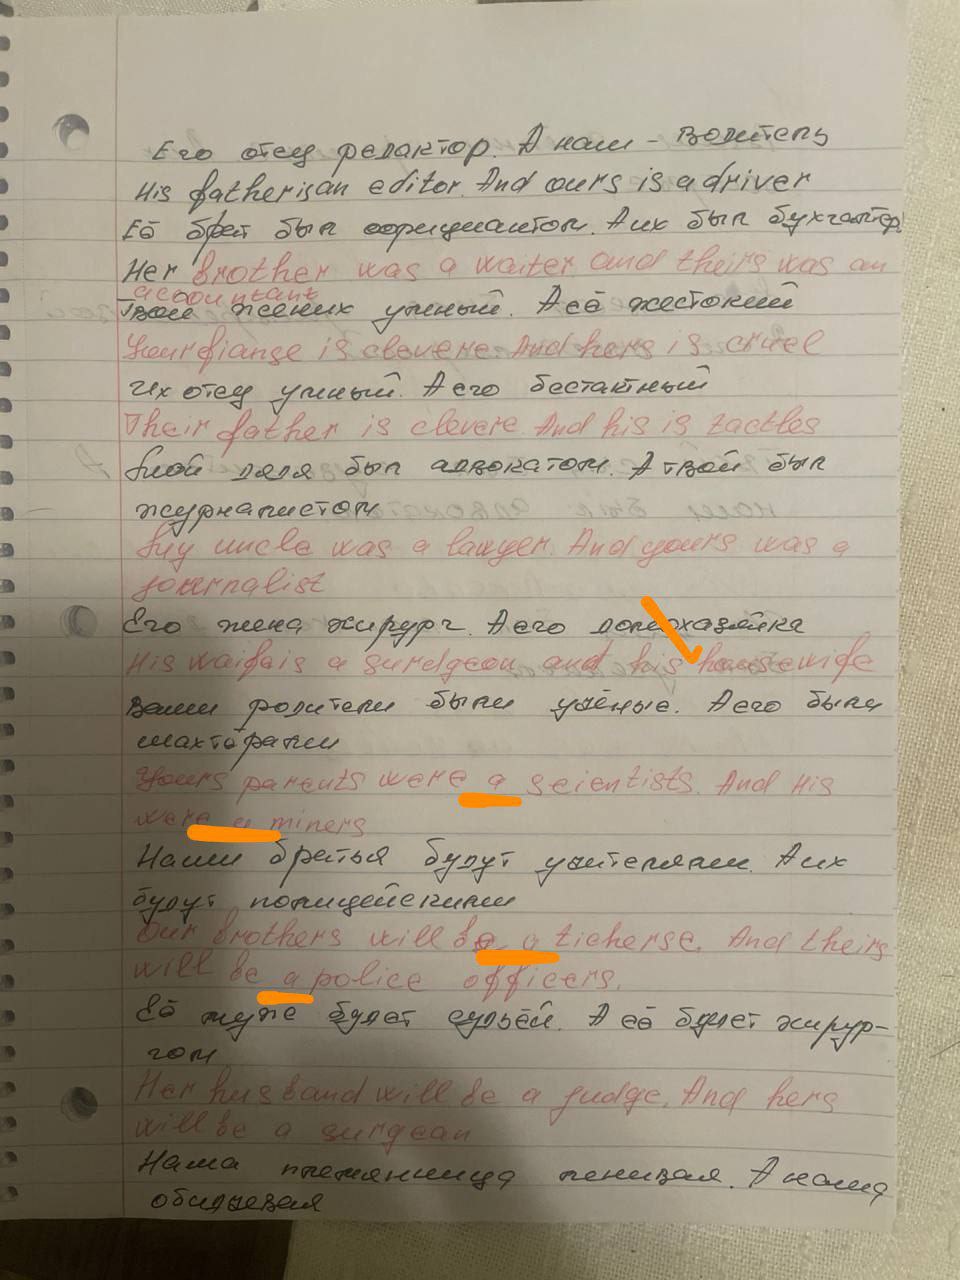 Его отец редактор. А наш - водитель
His father is an editor. And ours is a driver
Её брат был официантом. А их был бухгалтер
Her brother was a waiter and theirs was an
accountant
Твой жених умный. А её жестокий
Your fiange is clevere. And hers is cruel
Их отец умный. А его бестактный
Their father is clevere And his is tactles
Мой дядя был адвокатом. А твой был
журналистом
My uncle was a lawyer. And yours was a
journalist
Его жена хирург. А его домохазяйка
His waif is a surdgeon and his housewife
Ваши родители были учёные. А его были
шахтёрами
Yours parents were a scientists. And His
were a miners
Наши братья будут учителями. А их
будут полицейскими
Our brothers will be a ticherse. And theirs
will be a police officers.
Её муж будет судьёй. А её будет хирур-
гом
Her husband will be a judge. And hers
will be a surgean
Наша племянница ленивая. А наша